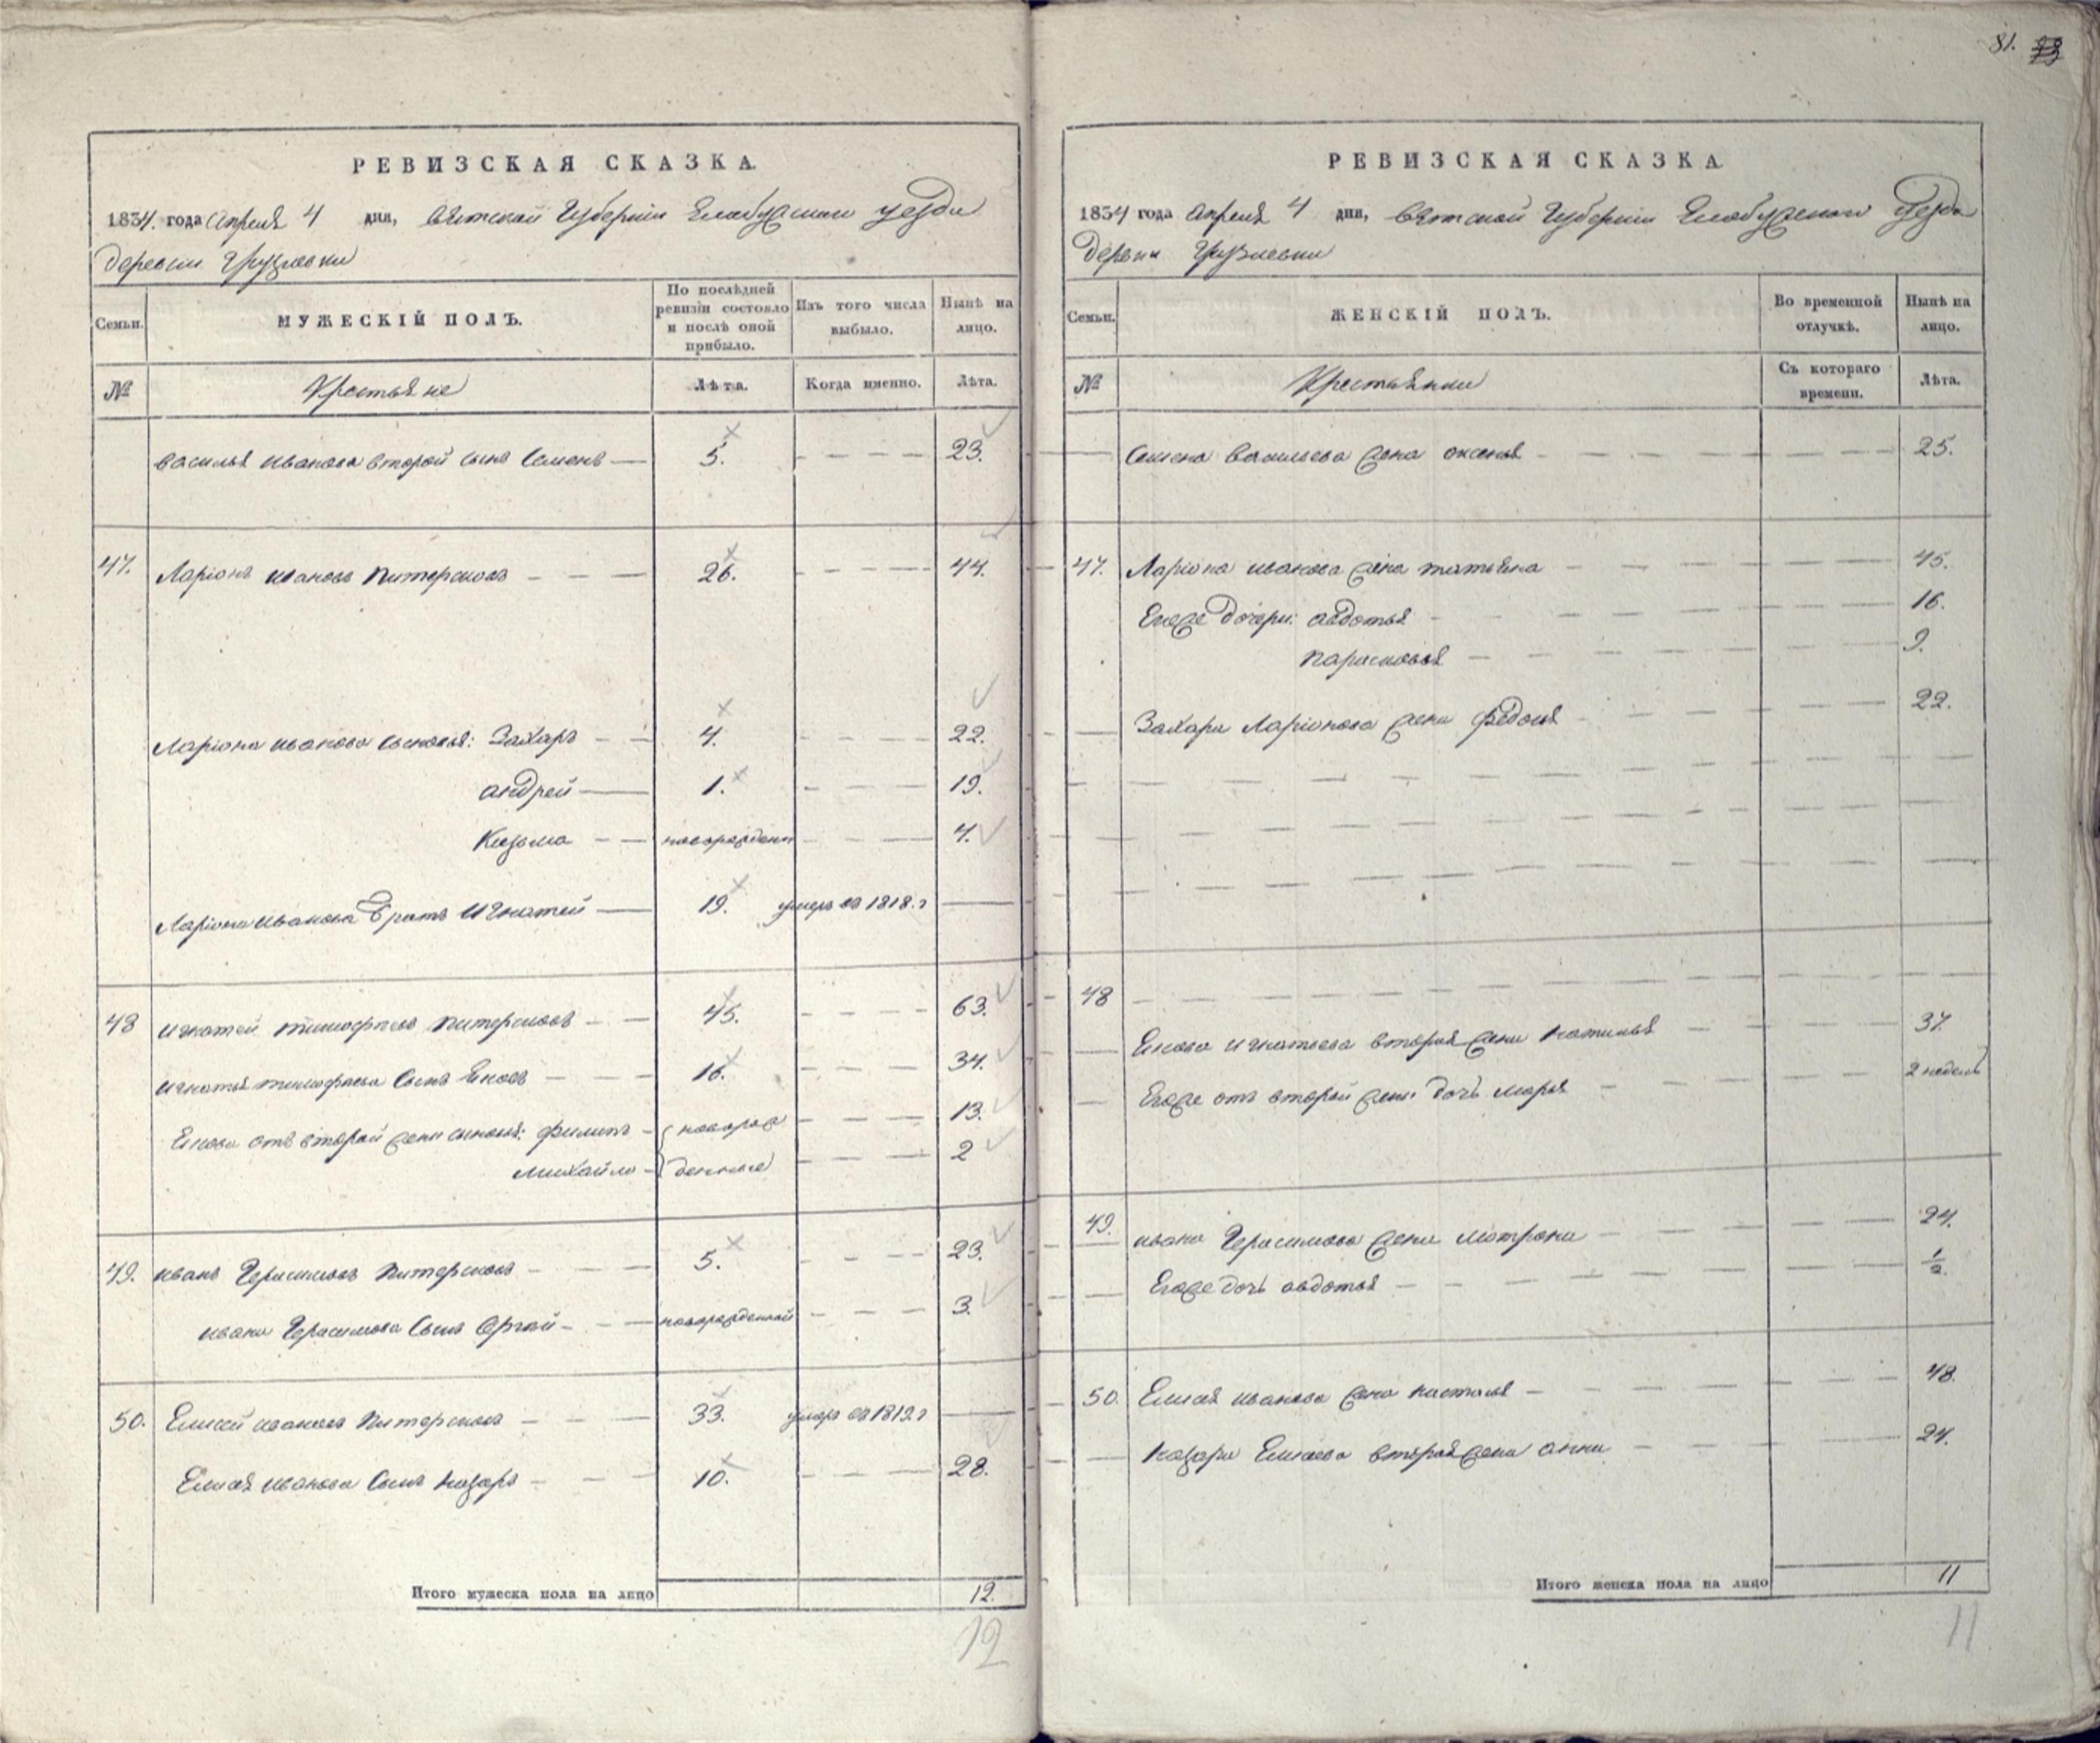 81.
РЕВИЗСКАЯ СКАЗКА.
1834. года Апреля 4 дня, Вятской Губернии Елабускаи уезда
деревни
Семьи.
МУЖЕСКІЙ ПОЛЪ.
По послѣдней ревизіи состояло и послѣ оной прибыло.
Изъ того числа выбыло.
Нынѣ на лицо.
№
Крестьяне
Лѣта.
Когда именно.
Лѣта.
Василья Иванова второй сынъ Семенъ — 5. — — — — 23.
47. Ларіонъ Ивановъ Питерсковъ — — — 26. — — — — 44.
Ларіона Иванова сыновья: Захаръ — — 4. — — — — 22.
Андрей — 1. — — — 19.
Кузьма — — новорожденн — — — 4.
Ларіона Иванова братъ Игнатей — 19. умеръ въ 1818. г —
48 Игнатей Тимофѣевъ Питерсковъ — — 45. — — — — 63.
Игнатья Тимофѣева сынъ Еновъ — — — 16. — — — 34.
Енова отъ второй жены сыновья: Филипъ — { новорож — — — 13.
Михайло — { денные — — — 2
49. Иванъ Герасимовъ Питерсковъ — — — 5. — — — 23.
Ивана Герасимова сынъ Сергей — — — новорожденной — — — 3.
50. Елисей Ивановъ Питерсковъ — — — 33. умеръ въ 1819. г —
Елисея Иванова сынъ Назаръ — — — 10. — — — 28.
Итого мужеска пола на лицо 12.
12
РЕВИЗСКАЯ СКАЗКА
1834 года Апреля 4 дня, Вятской Губернии Елабускои уезда
деревни
Семьи.
ЖЕНСКІЙ ПОЛЪ.
Во временной отлучкѣ.
Нынѣ на лицо.
№
Крестьянки
Съ котораго времени.
Лѣта.
Семена Васильева жена Оксенья — — — — — — 25.
47. Ларіона Иванова жена Татьяна — — — — — — 45.
Егоже дочери: Авдотья — — — — — — 16.
Парасковья — — — — — — 9.
Захара Ларіонова жена — — — — — 22.
48 — — — — — —
Енова Игнатьева вторая жена — — — — 37.
Егоже отъ второй жены дочь Марья — — — — 2 недель
49. Ивана Герасимова жена Матрона — — — — — 24.
Егоже дочь Авдотья — — — — — 1/2.
50. Елисея Иванова жена Насталья — — — — — 48.
Назара Елисеева вторая жена Анна — — — — 24.
Итого женска пола на лицо 11
11